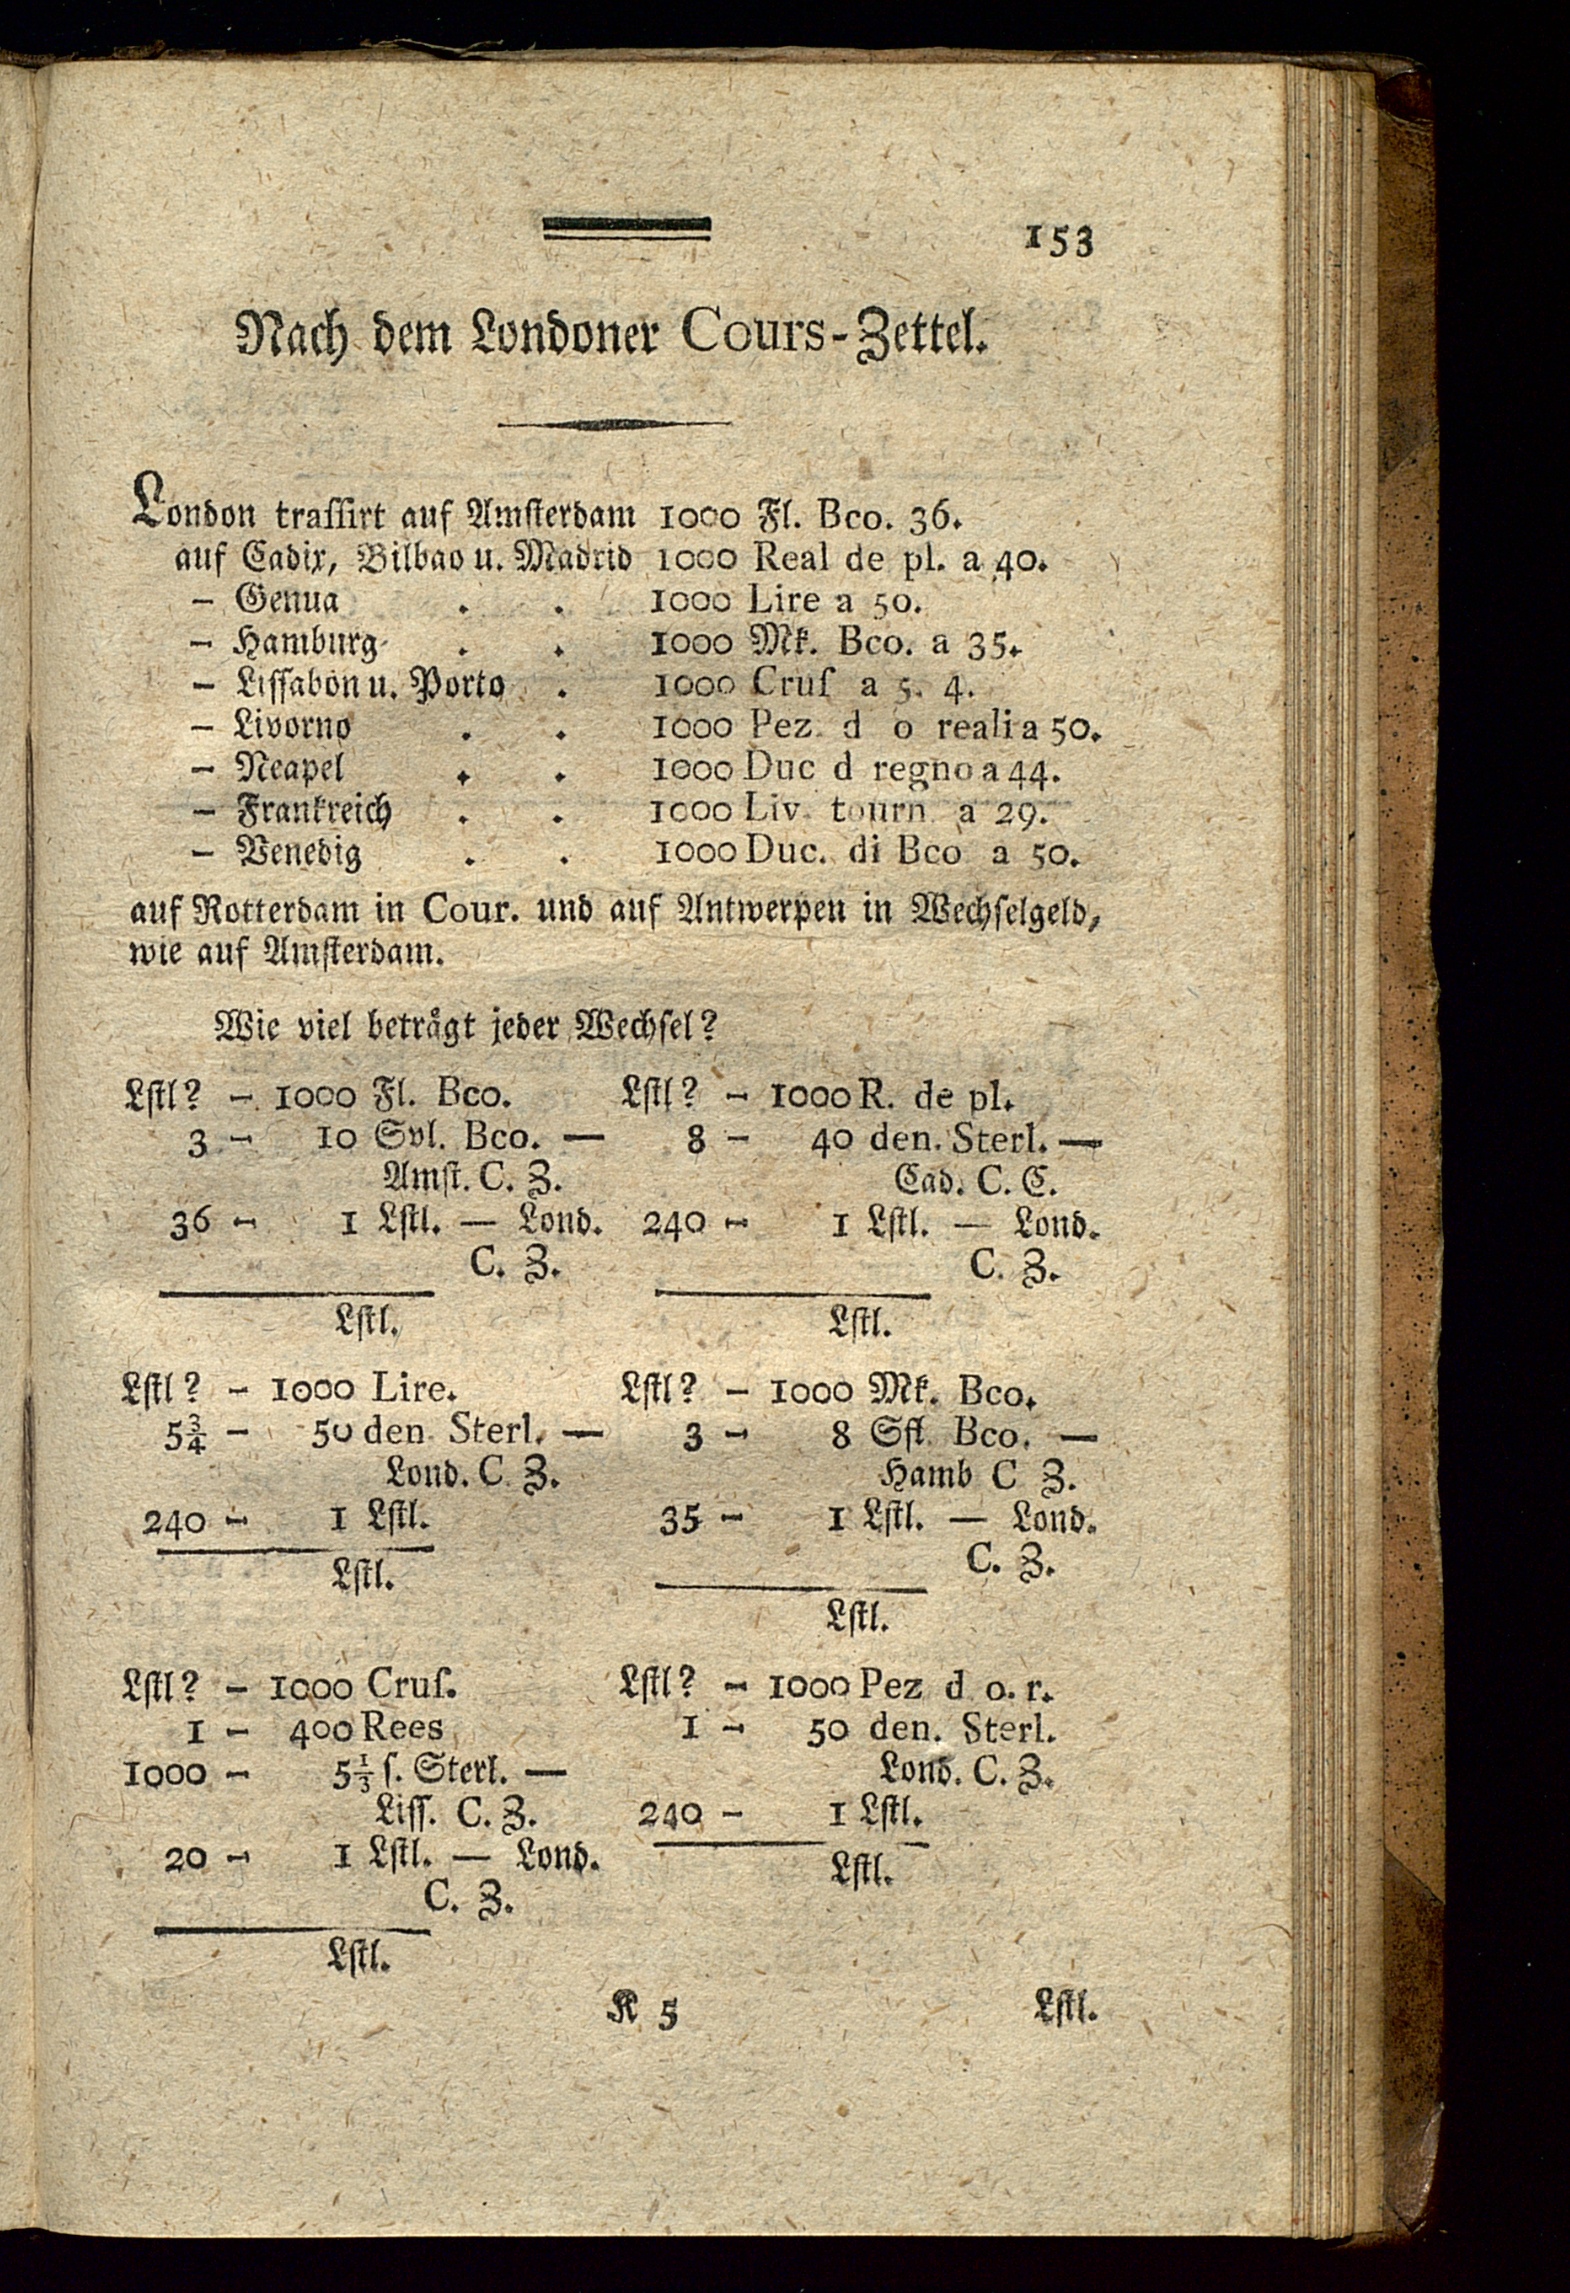 153
Nach dem Londoner Cours-Zettel.
London traſſirt auf Amſterdam 1000 Fl. Bco. 36.
auf Cadix, Bilbao u. Madrid 1000 Real de pl. a 40.
– Genua . . 1000 Lire a 50.
– Hamburg . . 1000 Mk. Bco. a 35.
– Liſſabon u. Porto . 1000 Cruſ a 5. 4.
– Livorno . . 1000 Pez. d o reali a 50.
– Neapel . . 1000 Duc d regno a 44.
– Frankreich . . 1000 Liv. tourn. a 29.
– Venedig . . 1000 Duc. di Bco a 50.
auf Rotterdam in Cour. und auf Antwerpen in Wechſelgeld,
wie auf Amſterdam.
Wie viel beträgt jeder Wechſel?
Lſtl? – 1000 Fl. Bco.
3 – 10 Svl. Bco. —
Amſt. C. Z.
36 – 1 Lſtl. — Lond.
C. Z.
Lſtl.
Lſtl? – 1000 R. de pl.
8 – 40 den. Sterl. —
Cad. C. C.
240 – 1 Lſtl. — Lond.
C. Z.
Lſtl.
Lſtl? – 1000 Lire.
5¾ – 50 den. Sterl. —
Lond. C. Z.
240 – 1 Lſtl.
Lſtl.
Lſtl? – 1000 Mk. Bco.
3 – 8 Sſl. Bco. —
Hamb C Z.
35 – 1 Lſtl. — Lond.
C. Z.
Lſtl.
Lſtl? – 1000 Cruſ.
1 – 400 Rees
1000 – 5⅓ ſ. Sterl. —
Liſſ. C. Z.
20 – 1 Lſtl. — Lond.
C. Z.
Lſtl.
Lſtl? – 1000 Pez d o. r.
1 – 50 den. Sterl.
Lond. C. Z.
240 – 1 Lſtl.
Lſtl.
K 5 Lſtl.